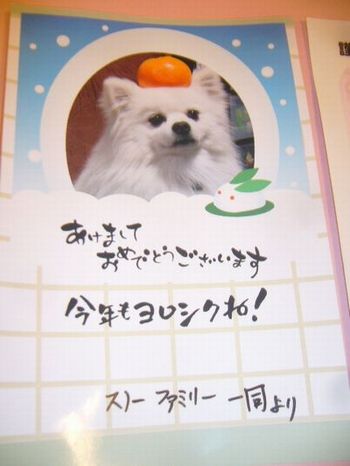 あけまして
おめでとうございます
今年もヨロシクね!
スノー ファミリー 一同より